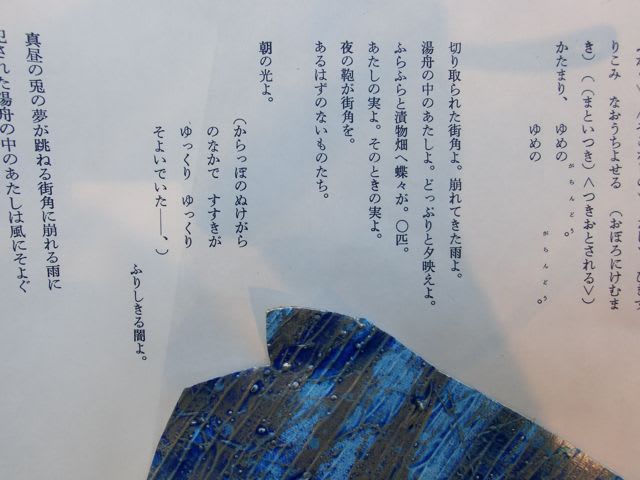 りこみ　なおうちよせる　（おぼろにけむま
き）（（まといつき）＜つきおとされる＞）
かたまり、ゆめの　がらんどう。
ゆめの　がらんどう。
切り取られた街角よ。崩れてきた雨よ。
湯舟の中のあたしよ。どっぷりと夕映えよ。
ふらふらと漬物畑へ蝶々が。〇匹。
あたしの実よ。そのときの実よ。
夜の鞄が街角を。
あるはずのないものたち。
朝の光よ。
（からっぽのぬけがら
のなかで　すすきが
ゆっくり　ゆっくり
そよいでいた――、）
ふりしきる闇よ。
真昼の兎の夢が跳ねる街角に崩れる雨に
された湯舟の中のあたしは風にそよぐ